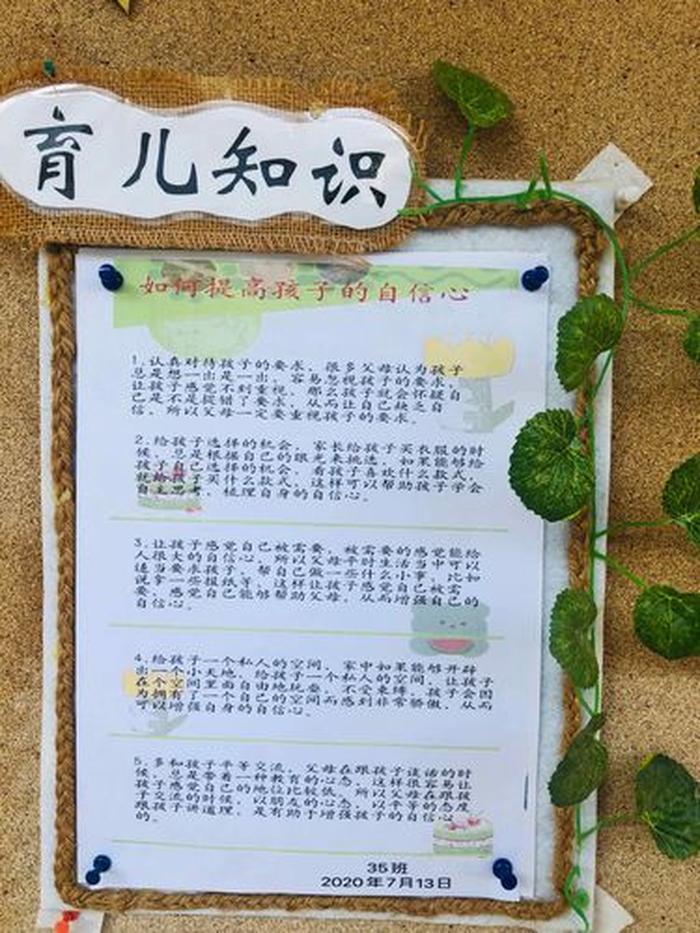 育儿知识
如何提高孩子的自信心
1.认真对待孩子的要求，很多父母认为孩子
总是想一出是一出，容易忽视孩子的要求，
让孩子感觉不到重视，那么孩子就会怀疑自
己是不是提错了要求，从而让自己缺乏自
信，所以父母一定要重视孩子的要求。
2.给孩子选择的机会，家长给孩子买衣服的时
候，总是根据自己的眼光来挑选，如果能够给
孩子自己选择的机会，看孩子喜欢什么款式，
就给孩子买什么款式，这样可以帮助孩子学会
自主思考，梳理自身的自信心。
3.让孩子感觉自己被需要，被需要的感觉能给
人很大的自信心，所以父母平时生活当中可以
适当要求孩子，帮自己做一些什么小事，比如
说拿一些报纸等，这样让孩子感觉自己被需
要，感觉自己能够帮助父母，从而增强自己的
自信心。
4.给孩子一个私人的空间，家中如果能够开辟
出一个小天地，给孩子一个私人的空间，让孩子
在个空间里面自由地玩耍，不受束缚，孩子会因
为拥有了一个自己的空间而感到非常骄傲，从而
可以增强自身的自信心。
5.多和孩子平等交流，父母在跟孩子谈话的时
候，总是带着一种教育的心态，这样很容易让
孩子感觉自己的地位比较低，所以父母在跟孩
子交流的时候，以朋友的心态，以平等的态度
跟孩子讲道理，是有助于增强孩子的自信心
的。
35班
2020年7月13日